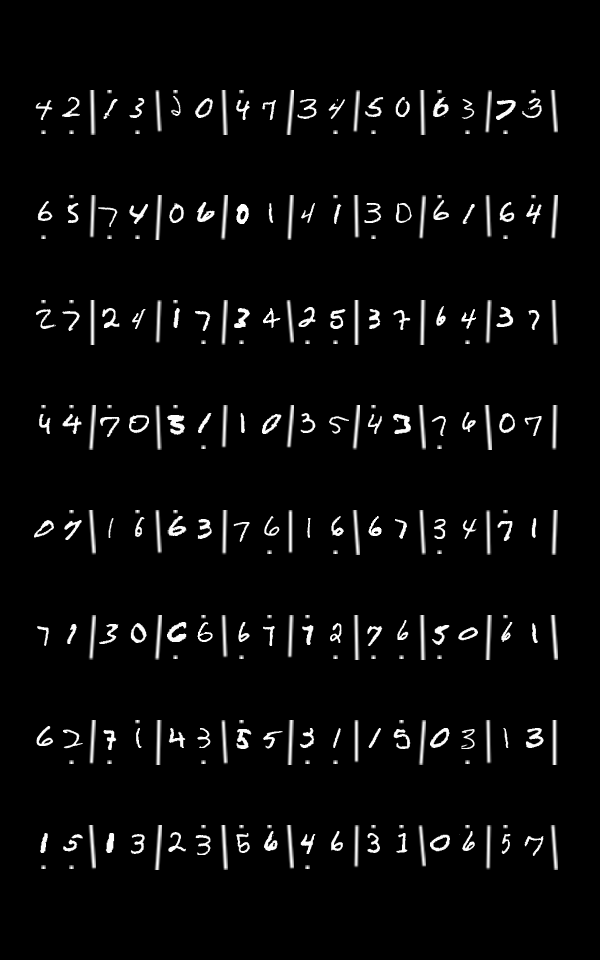 4̣ 2̣ | 1̇ 3̣ | 2̇ 0 | 4̇ 7 | 3 4̣ | 5̣ 0 | 6̇ 3̣ | 7̣ 3̇ |
6̣ 5̇ | 7̣ 4̣ | 0 6 | 0 1 | 4 1̇ | 3̣ 0 | 6̇ 1 | 6̣ 4̇ |
2̇ 7̇ | 2 4 | 1̇ 7̣ | 3̣ 4 | 2̣ 5̣ | 3 7 | 6 4̣ | 3 7 |
4̇ 4̇ | 7̇ 0 | 5̇ 1̣ | 1 0 | 3 5 | 4̇ 3 | 7̣ 6 | 0 7 |
0 7̇ | 1 6̇ | 6̇ 3 | 7 6̣ | 1 6̣ | 6 7 | 3̣ 4 | 7̇ 1 |
7 1 | 3 0 | 6̣ 6̇ | 6̣ 7̇ | 1̇ 2̣ | 7̣ 6̣ | 5̣ 0 | 6̇ 1 |
6 2̣ | 7̣ 1̇ | 4 3̣ | 5̇ 5 | 3̣ 1̣ | 1 5̇ | 0 3̣ | 1 3 |
1̣ 5̣ | 1 3 | 2 3̇ | 5̇ 6̇ | 4̣ 6 | 3̇ 1̇ | 0 6̇ | 5̇ 7 |